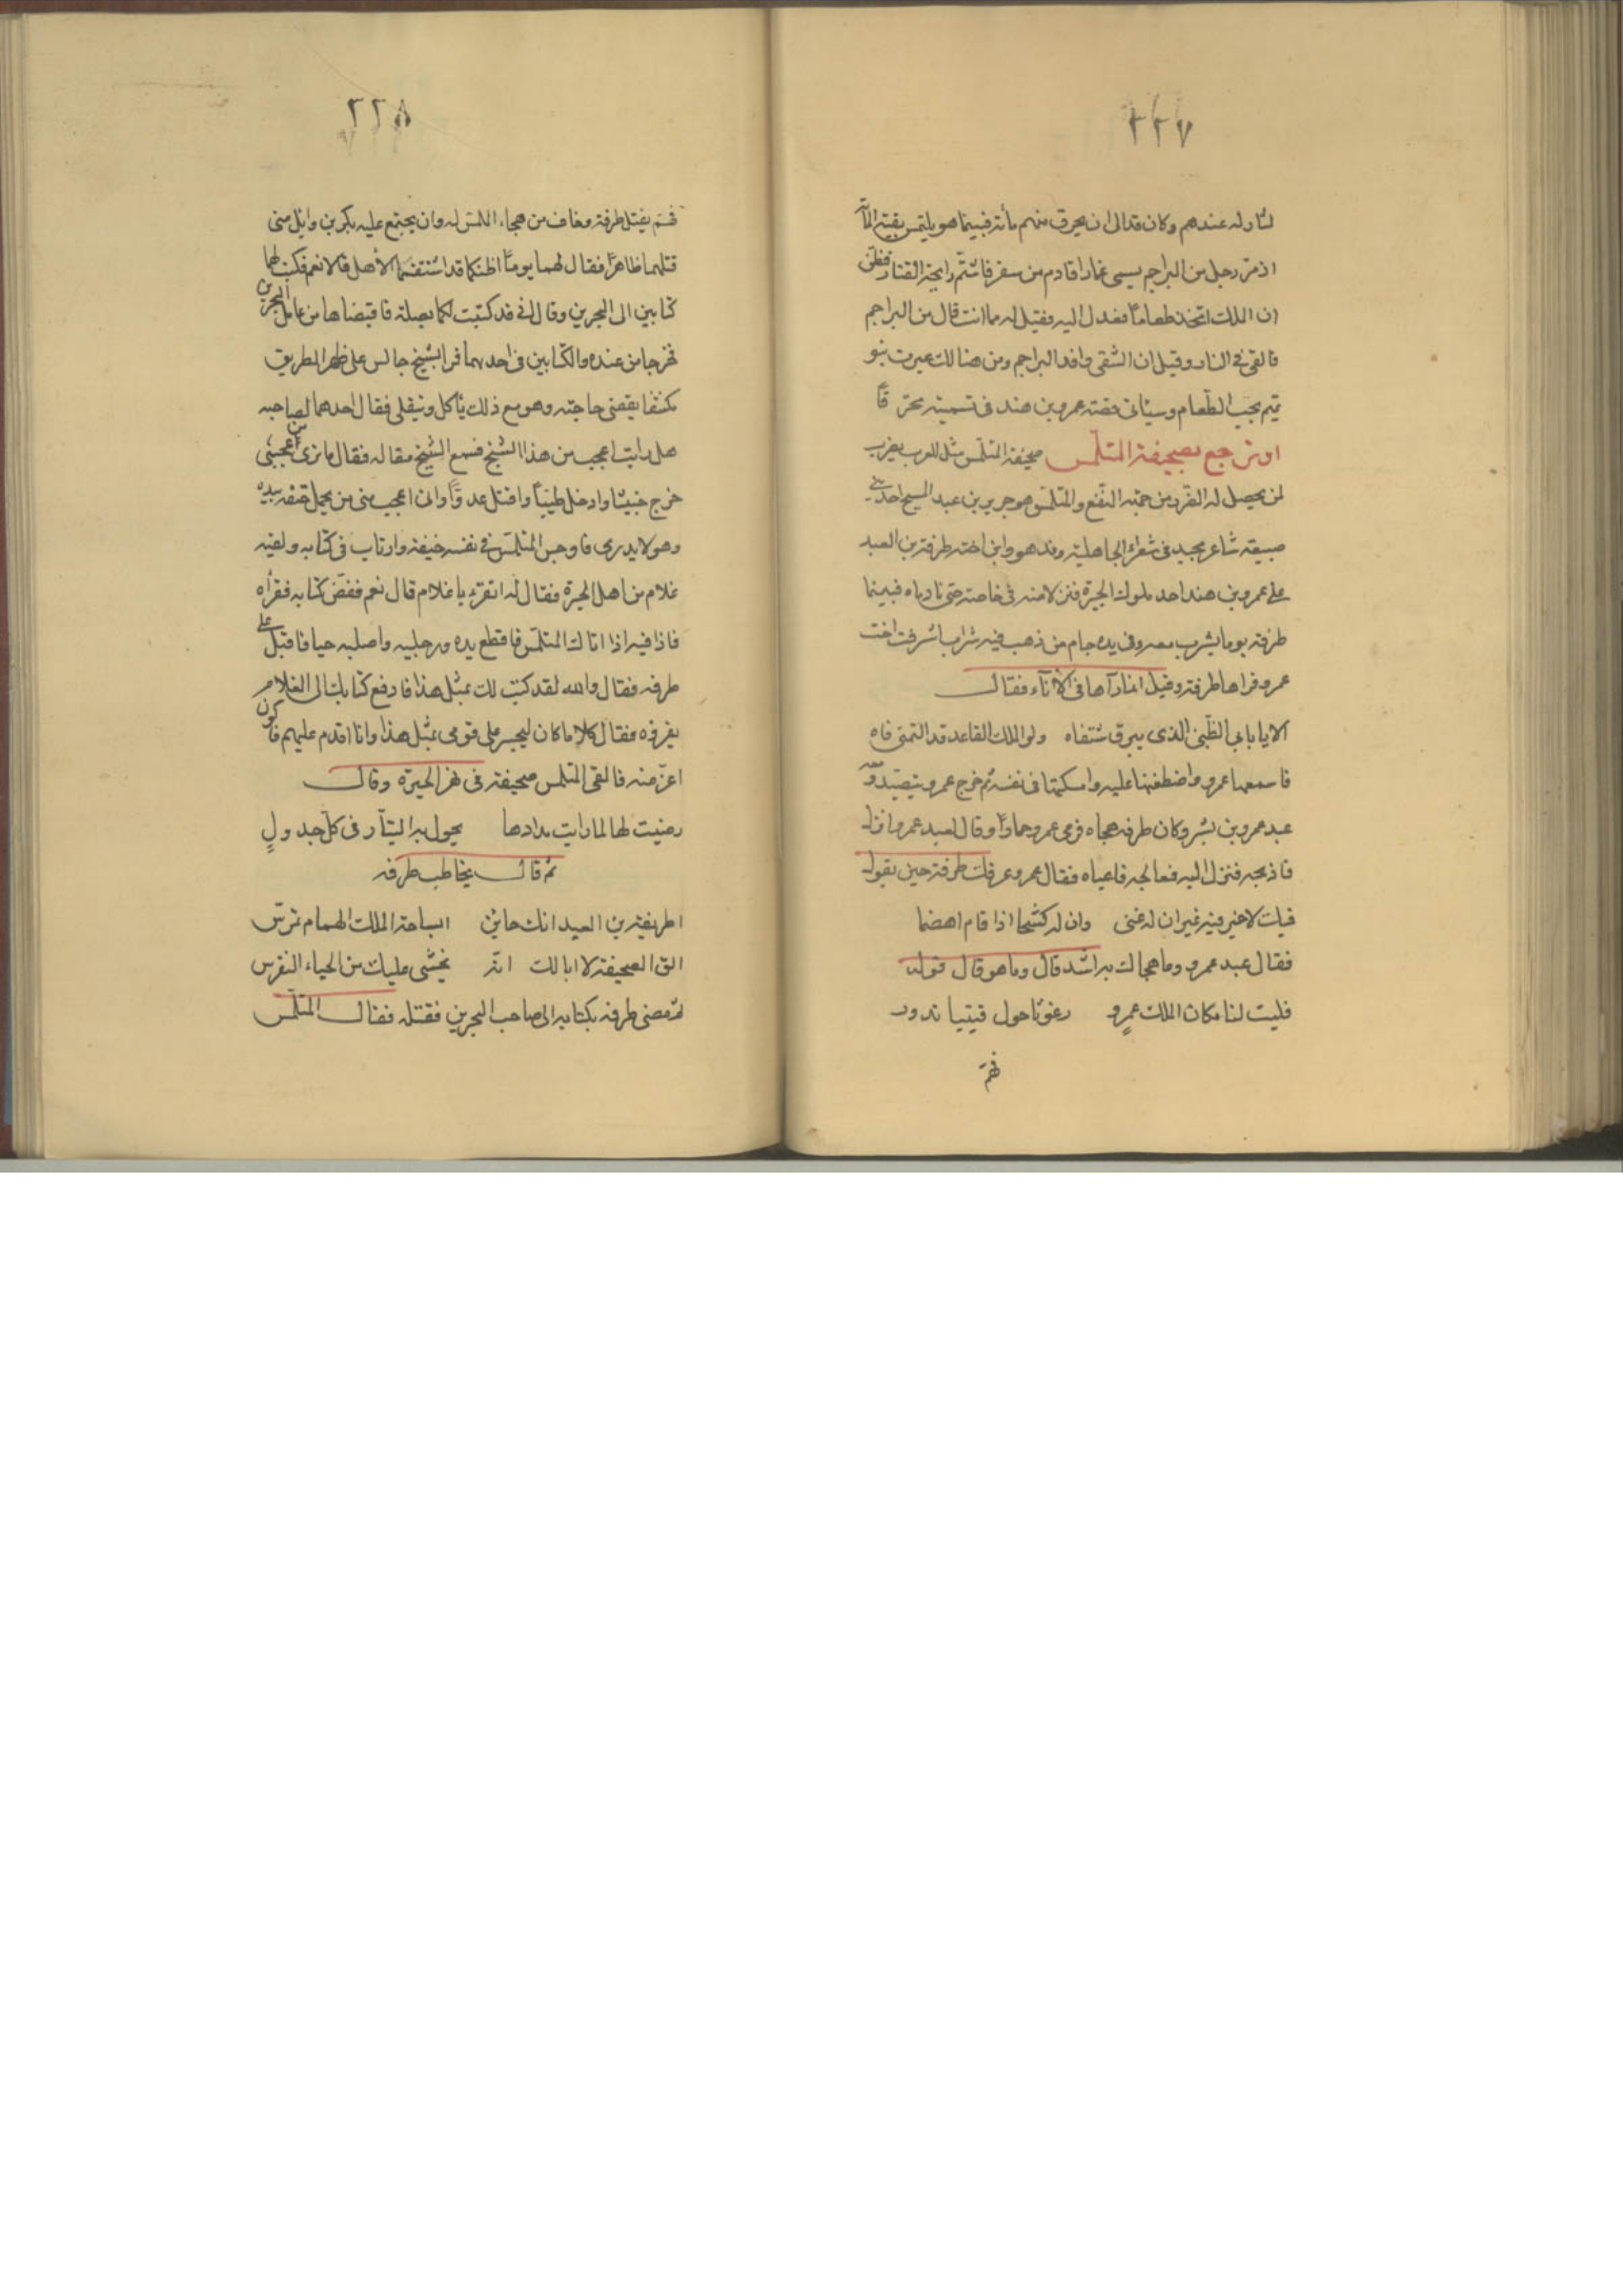 ٢٢٧
لثار له عندهم وكان قد الى ان يحرق منهم مائة فبينما هو يلتمس بقية المأة
اذ مرّ رجل من البراجم يسمى عمارا قادم من سفر فاشتمّ رايحة القتار فظن
ان الملك اتخذ طعاماً فعدل اليه فقيل له ما انت قال من البراجم
فالقى فى النار وقيل ان الشقى وافد البراجم ومن هنالك عيرت بنو
تميم بحب الطّعام وسياتى قصته عمرو بن هند فى تسميته محرّقاً
او ترجع بصحيفة المتلمّس صحيفة المتلمّس مثل للعرب يضرب
لمن يحصل له الضّرر من جهة النّفع والمتلمّس هو جرير بن عبد المسيح احد بنى
ضبيعة شاعر مجيد فى شعراء الجاهلية وفد هو وابن اخته طرفة بن العبد
على عمرو بن هند احد ملوك الحيرة فنزلا منه فى خاصته حتى نادماه فبينما
طرفة يوما يشرب معه وفى يده جام من ذهب فيه شراب اشرفت اخت
عمرو فراها طرفة وقيل انما رآها فى الاناء فقال
الا يا بابى الظّبى الذى يبرق شنفاه ولو الملك القاعد قد التمنى فاه
فاسمعها عمرو واضطغنها عليه وامسكها فى نفسه ثم خرج عمرو يتصيّد ومعه
عبد عمرو بن بشر وكان طرفة هجاه فرمى عمرو حماراً وقال لعبد عمرو انزل
فاذبحه فنزل اليه فعالجه فاعياه فقال عمرو عرفك طرفة حين يقول
فيك لا خير فيه غير ان له غنى وان له كشحا اذا قام اهضما
فقال عبد عمرو وما هجاك به اشد قال وما هو قال قوله
فليت لنا مكان الملك عمرٍو رغوثا حول قبتيا تدور
فهمّ
٢٢٨
فهمّ بقتل طرفة وخاف من هجاء المتلمس له وان يجتمع عليه بكر بن وايل متى
قتلهما ظاهراً فقال لهما يوماً اظنكما قد اشتقتما الأهل قالا نعم فكتب لهما
كتابين الى البحرين وقال انى قد كتبت لكما بصلة فاقبضاها من عامل البحرين
فخرجا من عنده والكتابين فى احديهما فرا الشيخ جالس على ظهر الطريق
مكشفا يقضى حاجته وهو مع ذلك يأكل ويتفلى فقال احدهما لصاحبه
هل رايت اعجب من هذا الشيخ فسمع الشيخ مقاله فقال ما ترى من عجبى
خرج خبيثا وادخل طيباً واقتل عدوّاً وان اعجب منى من يحمل حتفه بيده
وهو لا يدرى فاوجس المتلمّس فى نفسه خيفة وارتاب فى كتابه ولقيه
غلام من اهل الحيرة فقال له اتقرء يا غلام قال نعم ففضّ كتابه فقرأه
فاذا فيه اذا اتاك المتلمّس فاقطع يده ورجليه واصلبه حيا فاقبل على
طرفه فقال والله لقد كتب لك بمثل هذا فادفع كتابك الى الغلام
يقرؤه فقال كلا ما كان ليجسر على قومى بمثل هذا وانا اقدم عليهم فاكون
اعزّ منه فالقى المتلمس صحيفته فى نهر الحيرة وقال
رضيت لها لما رايت مدادها يجول به التيّار فى كلّ جدولٍ
ثم قال يخاطب طرفه
اطريفة بن العبد انك حاين ابساحة الملك الهمام تمرّس
الق الصحيفة لا ابا لك انه يخشى عليك من الحباء النقرس
ثم مضى طرفه بكتابه الى صاحب البحرين فقتله فقال المتلمّس